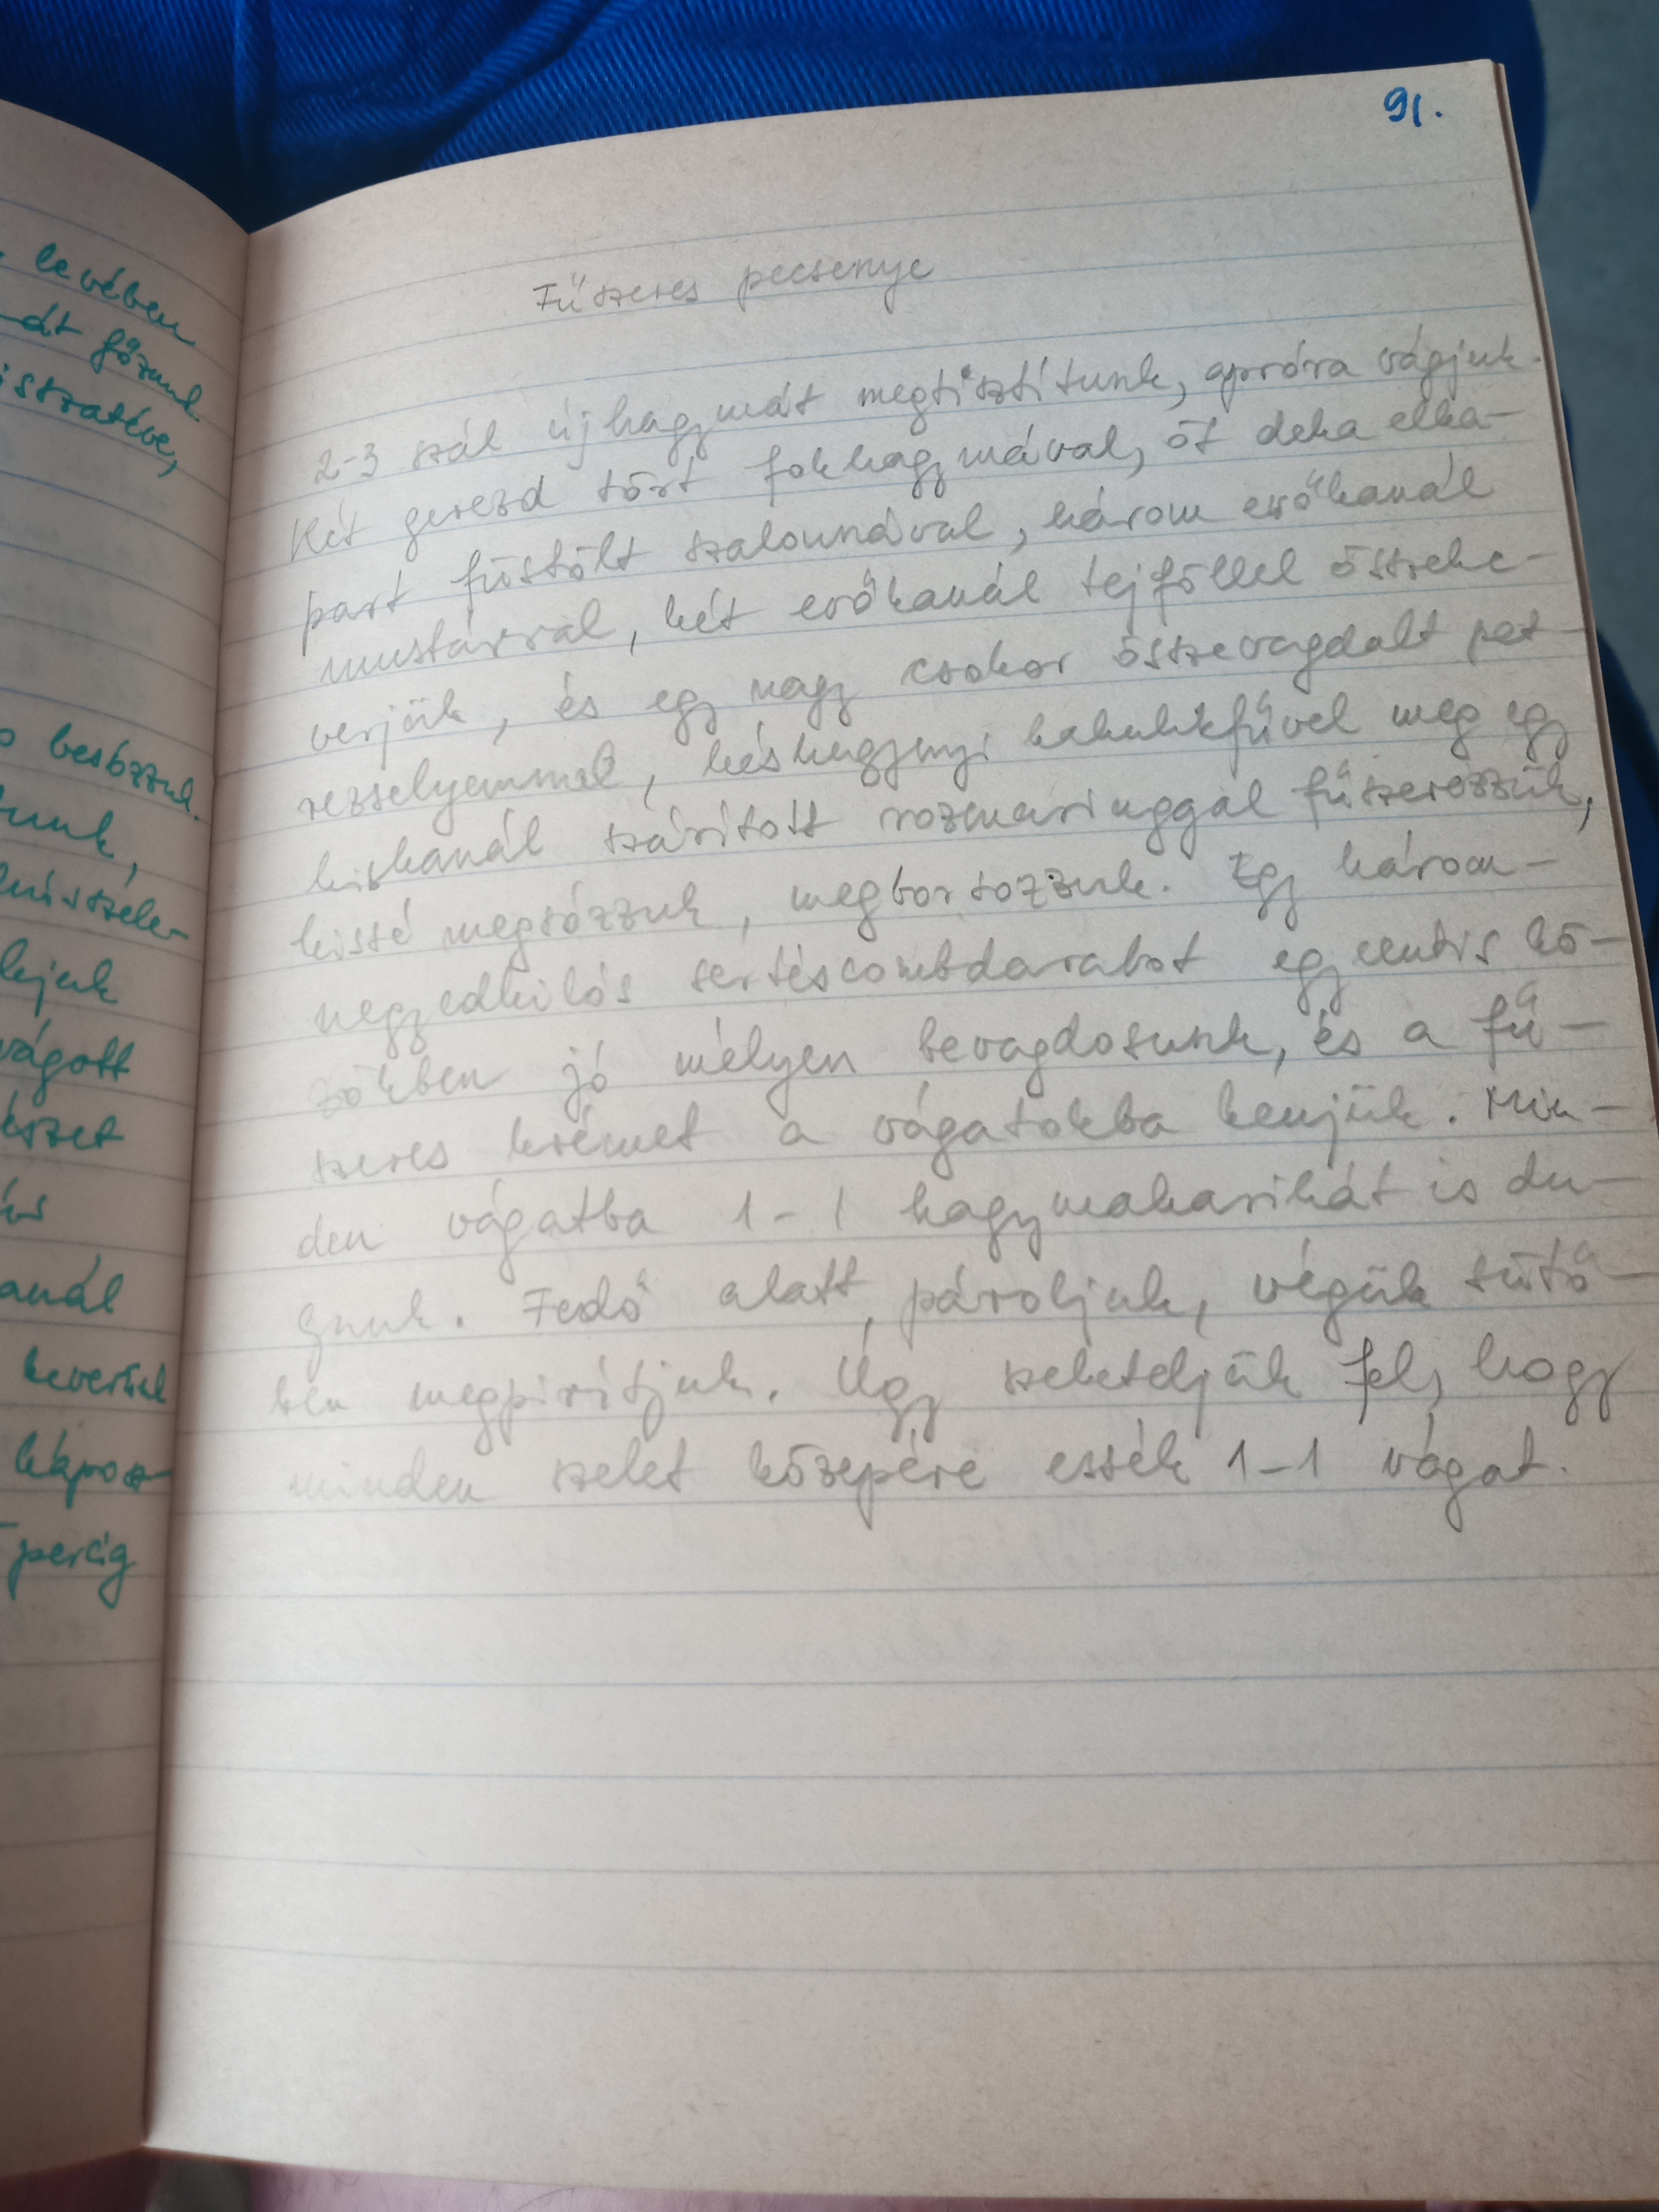 levében
át főzünk
isztatéve,
besózzuk.
tunk,
vágott
észet
anál
káposz-
percig
91.
Fűszeres pecsenye
2-3 szál újhagymát megtisztítunk, apróra vágjuk.
Két gerezd tört fokhagymával, öt deka elka-
part füstölt szalonnával, három evőkanál
mustárral, két evőkanál tejföllel összeke-
verjük, és egy nagy csokor összevagdalt pet-
rezselyemmel, késhegynyi kakukkfűvel meg egy
kiskanál szárított rozmaringgal fűszerezzük,
kissé megsózzuk, megborsozzuk. Egy három-
negyedkilós sertéscombdarabot egycentis kö-
zökben jó mélyen bevagdosunk, és a fű-
szeres krémet a vágatokba kenjük. Min-
den vágatba 1-1 hagymakarikát is du-
gunk. Fedő alatt, pároljuk, végük sütő-
ben megpirítjuk. Úgy szeleteljük fel, hogy
minden szelet közepére essék 1-1 vágat.